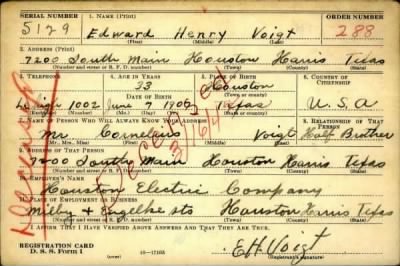 SERIAL NUMBER 1. NAME (Print) ORDER NUMBER
5129 Edward Henry Voigt 288
(First) (Middle) (Last)
2. ADDRESS (Print)
7200 South Main Houston Harris Texas
(Number and street or R. F. D. number) (Town) (County) (State)
3. TELEPHONE 4. AGE IN YEARS 5. PLACE OF BIRTH 6. COUNTRY OF CITIZENSHIP
33 Houston
DATE OF BIRTH (Town or county)
1002 June 7 1906 Texas U.S.A
(Mo.) (Day) (Yr.) (State or country)
7. NAME OF PERSON WHO WILL ALWAYS KNOW YOUR ADDRESS 8. RELATIONSHIP OF THAT PERSON
Mr Cornelius Voigt Half Brother
(Mr., Mrs., Miss) (First) (Middle) (Last)
9. ADDRESS OF THAT PERSON
7200 South Main Houston Harris Texas
(Number and street or R. F. D. number) (Town) (County) (State)
10. EMPLOYER'S NAME
Houston Electric Company
11. PLACE OF EMPLOYMENT OR BUSINESS
Milby & Engelke sts Houston Harris Texas
(Number and street or R. F. D. number) (Town) (County) (State)
I AFFIRM THAT I HAVE VERIFIED ABOVE ANSWERS AND THAT THEY ARE TRUE.
REGISTRATION CARD
D. S. S. Form 1 16-17105 EH Voigt
(Registrant's signature)